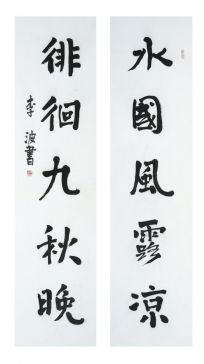 水國風露涼
徘徊九秋晚
李波書